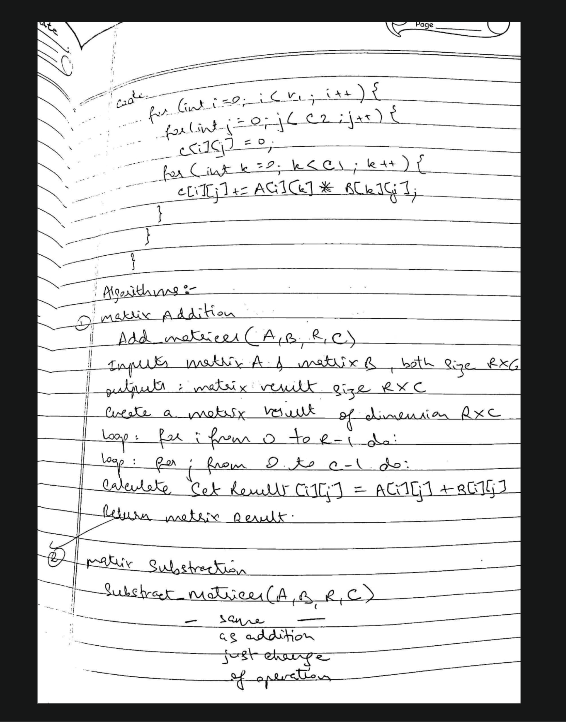 ate
Page
code
for (int i=0; i<r1; i++) {
for(int j=0; j<c2; j++) {
c[i][j] = 0;
for (int k=0; k<c1; k++) {
c[i][j] += A[i][k] * B[k][j];
}
}
}
Algorithms:-
① matrix Addition
Add_matrices (A,B,R,C)
Inputs matrix A & matrix B, both size RXC
outputs : matrix result size RXC
Create a matrix result of dimension RXC
Loop: for i from 0 to R-1 do:
Loop: for j from 0 to C-1 do:
Calculate Set Result [i][j] = A[i][j] + B[i][j]
Return matrix Result.
② matrix Substraction
Substract_matrices(A,B,R,C)
- same -
as addition
just change
of operation